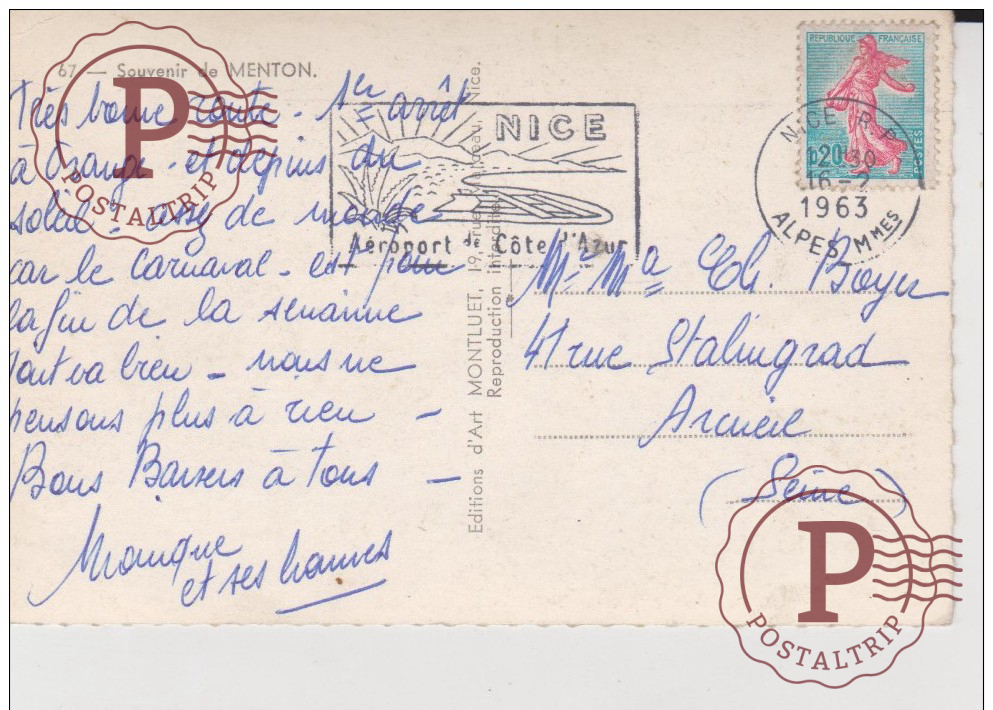 67 — Souvenir de MENTON.
Très bonne route - 1er arrêt
à Orange - et depuis du
soleil - assez de monde
car le carnaval - est pour
la fin de la semaine
tout va bien - nous ne
pensons plus à rien -
Bons Baisers à tous -
et ses
Editions d'Art MONTLUET, 19, rue Nice.
Reproduction interdite
NICE
Aéroport de Côte d'Azur
REPUBLIQUE FRANÇAISE
0,20
POSTES
NICE R.P.
30
16-2
1963
ALPES MMES
Mr Ma Ch. Boyer
41 rue Stalingrad
Arcueil
(Seine)
P
POSTALTRIP
P
POSTALTRIP